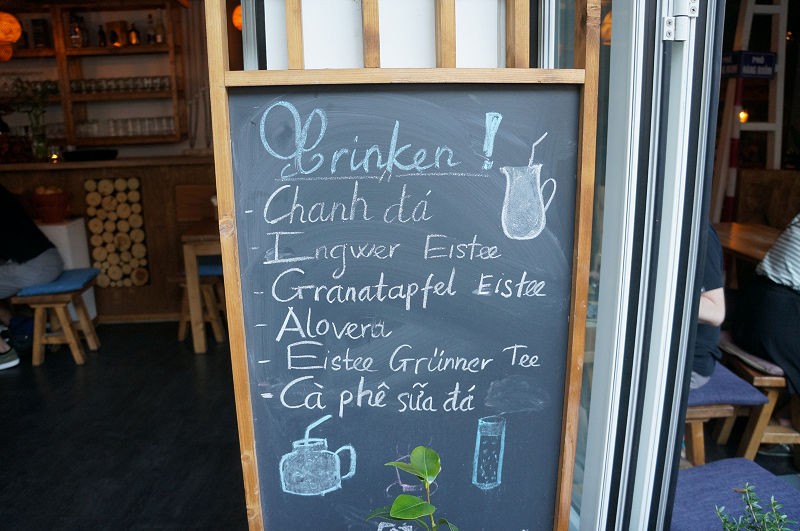 Trinken !
- Chanh đá
- Ingwer Eistee
- Granatapfel Eistee
- Alovera
- Eistee Grünner Tee
- Cà phê sữa đá